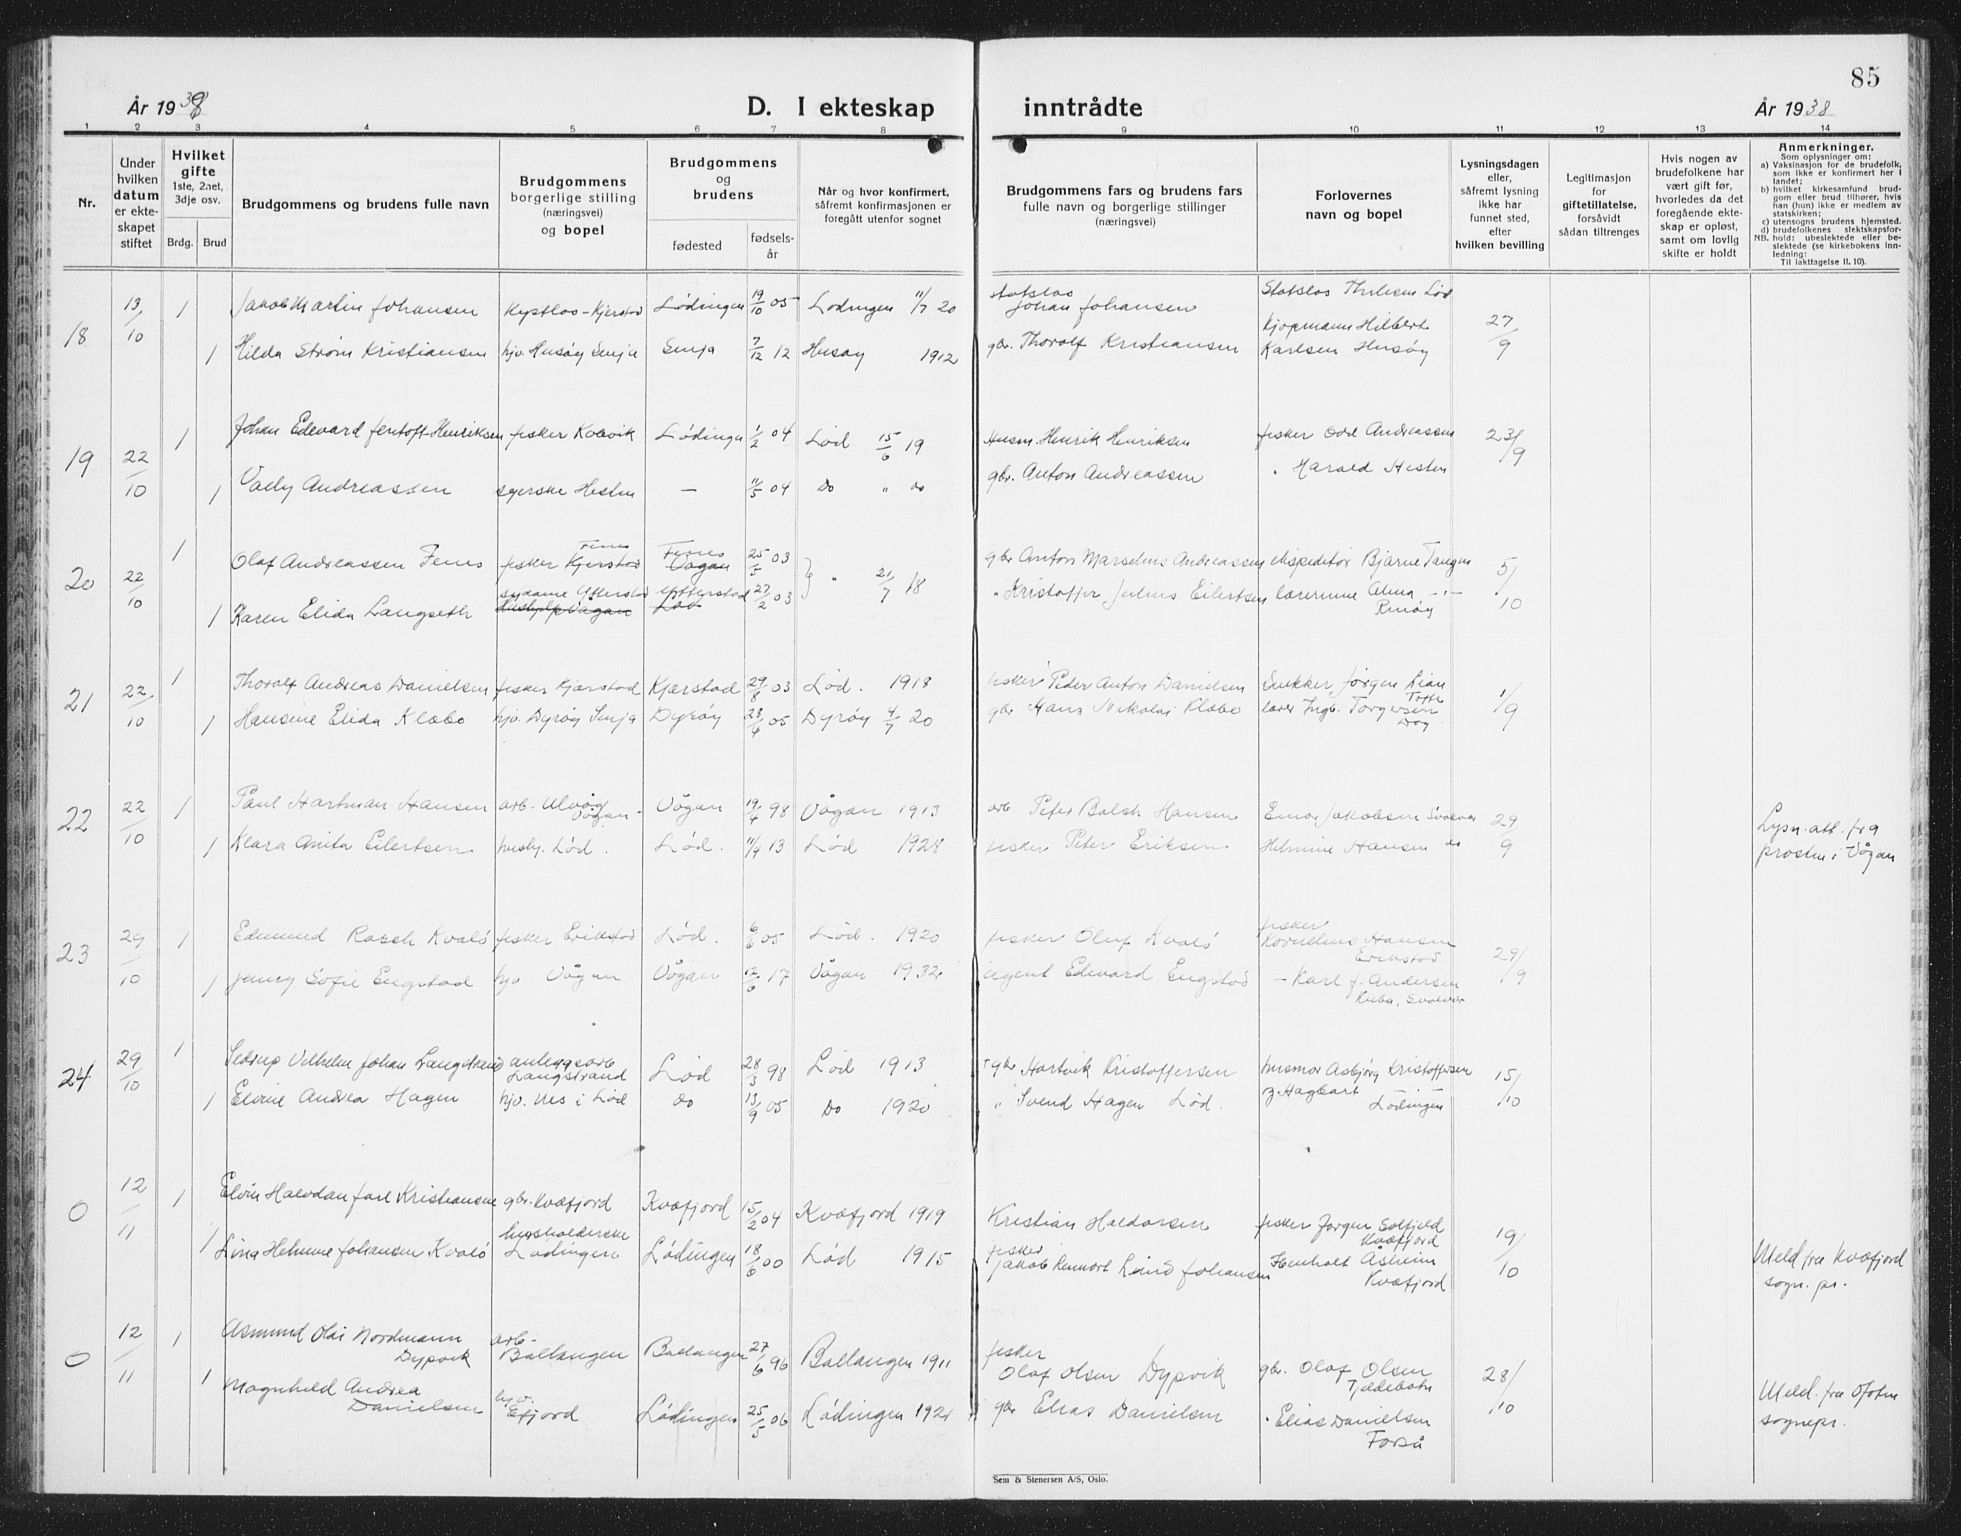 85
År 1938
D. I ekteskap inntrådte
År 1938
1 2 3 4 5 6 7 8 9 10 11 12 13 14
Nr.
Under hvilken datum er ekteskapet stiftet
Hvilket gifte 1ste, 2net, 3dje osv.
Brdg. Brud
Brudgommens og brudens fulle navn
Brudgommens borgerlige stilling (næringsvei) og bopel
Brudgommens og brudens
fødested
fødselsår
Når og hvor konfirmert, såfremt konfirmasjonen er foregått utenfor sognet
Brudgommens fars og brudens fars fulle navn og borgerlige stillinger (næringsvei)
Forlovernes navn og bopel
Lysningsdagen eller, såfremt lysning ikke har funnet sted, efter hvilken bevilling
Legitimasjon for giftetillatelse, forsåvidt sådan tiltrenges
Hvis nogen av brudefolkene har vært gift før, hvorledes da det foregående ekteskap er opløst, samt om lovlig skifte er holdt
Anmerkninger.
Som oplysninger om:
a) Vaksinasjon for de brudefolk, som ikke er konfirmert her i landet;
b) hvilket kirkesamfund brudgom eller brud tilhører, hvis han (hun) ikke er medlem av statskirken;
c) utensogns brudens hjemsted.
d) brudefolkenes slektskapsforhold: ubeslektede eller beslektede (se kirkebokens innledning:
NB.
Til iakttagelse II, 10).
18 13/10 1 Jakob Martin Johansen Kjerstad Lødingen 19/10 05 Lødingen 11/7 20 Johan Johansen
1 Hilda Strøm Kristiansen hjv. Husøy Senja Senja 7/12 12 Husøy 1912 gbr. Thoralf Kristiansen Kjøpmann Hilbert Karlsen Husøy 27/9
19 22/10 1 Johan Edevard Jentoft Henriksen fisker Lødingen 1/2 04 Lød 15/6 19 Henrik Henriksen fisker Odd Andreassen 23/9
1 Vally Andreassen syerske Hesten — 11/5 04 Do " do gbr. Anton Andreassen " Harald Hesten
20 22/10 1 Olaf Andreassen Fenes fisker Kjerstad Fenes Fenes Vågan 25/5 03 " 21/7 18 gbr Anton Marselius Andreassen ekspeditør Bjarne Tangen 5/10
1 Karen Elida Langseth sydame Offerstad Offerstad Lød 27/2 03 " Kristoffer Julius Eilertsen lærerinne Alma —"— Rinøy
21 22/10 1 Thoralf Andreas Danielsen fisker Kjærstad Kjærstad 29/8 03 Lød. 1918 fisker Peder Anton Danielsen Snekker Jørgen Lian 1/9
1 Hansine Elida Klæbo hjv. Dyrøy Senja Dyrøy 23/4 05 Dyrøy 4/7 20 gbr Hans Nikolai Klæbo lærer Ingb. Torgersen
22 22/10 1 Paul Hartman Hansen arb. Ulvåg Vågan Vågan 19/4 98 Vågan 1913 arb Peter Hansen Einar Jakobsen Svolvær 29/9
1 Klara Anita Eilertsen husbj. Lød. Lød. 11/4 13 Lød 1928 fisker Peter Eriksen Helmine Hansen do
Lysn. att. fra prosten i Vågan
23 29/10 1 Edmund Rasch Kvalø fisker Erikstad Lød. 6/6 05 Lød. 1920 fisker Oluf Kvalø fisker Kornelius Hansen Erikstad 29/9
1 Jenny Sofie Engstad hjv Vågan Vågan 12/6 17 Vågan 1932 agent Edevard Engstad — Karl J. Andersen Kuba, Svolvær
24 29/10 1 Sedrup Vilhelm Johan Langstrand anleggsarb Langstrand Lød 28/3 98 Lød 1913 gbr Hartvik Kristoffersen husmor Asbjørg Kristoffersen 15/10
1 Elvine Andrea Hagen hjv. Nes i Lød Do 13/9 05 Do 1920 " Svend Hagen Lød. og Hagbart — Lødingen
0 12/11 1 Elvin Halvdan Jarl Kristiansen gbr. Kvæfjord Kvæfjord 15/2 04 Kvæfjord 1919 Kristian Haldorsen fisker Jørgen Solfjeld Kvæfjord 19/10
1 Lina Helmine Johansen Kvalø husholderske Lødingen Lødingen 18/6 00 Lød 1915 fisker Jakob Lind Johansen Åsheim Kvæfjord
Meld fra Kvæfjord sogn. pr.
0 12/11 1 Asmund Olai Nordmann Dypvik arb. Ballangen Ballangen 27/6 96 Ballangen 1911 fisker Olaf Olsen Dypvik gbr. Olaf Olsen Tjeldebotn 28/10
1 Magnhild Andrea Danielsen hjv. Efjord Lødingen 25/5 06 Lødingen 1921 gbr Elias Danielsen " Elias Danielsen Forså
Meld. fra Ofoten sognepr.
Sem & Stenersen A/S, Oslo.